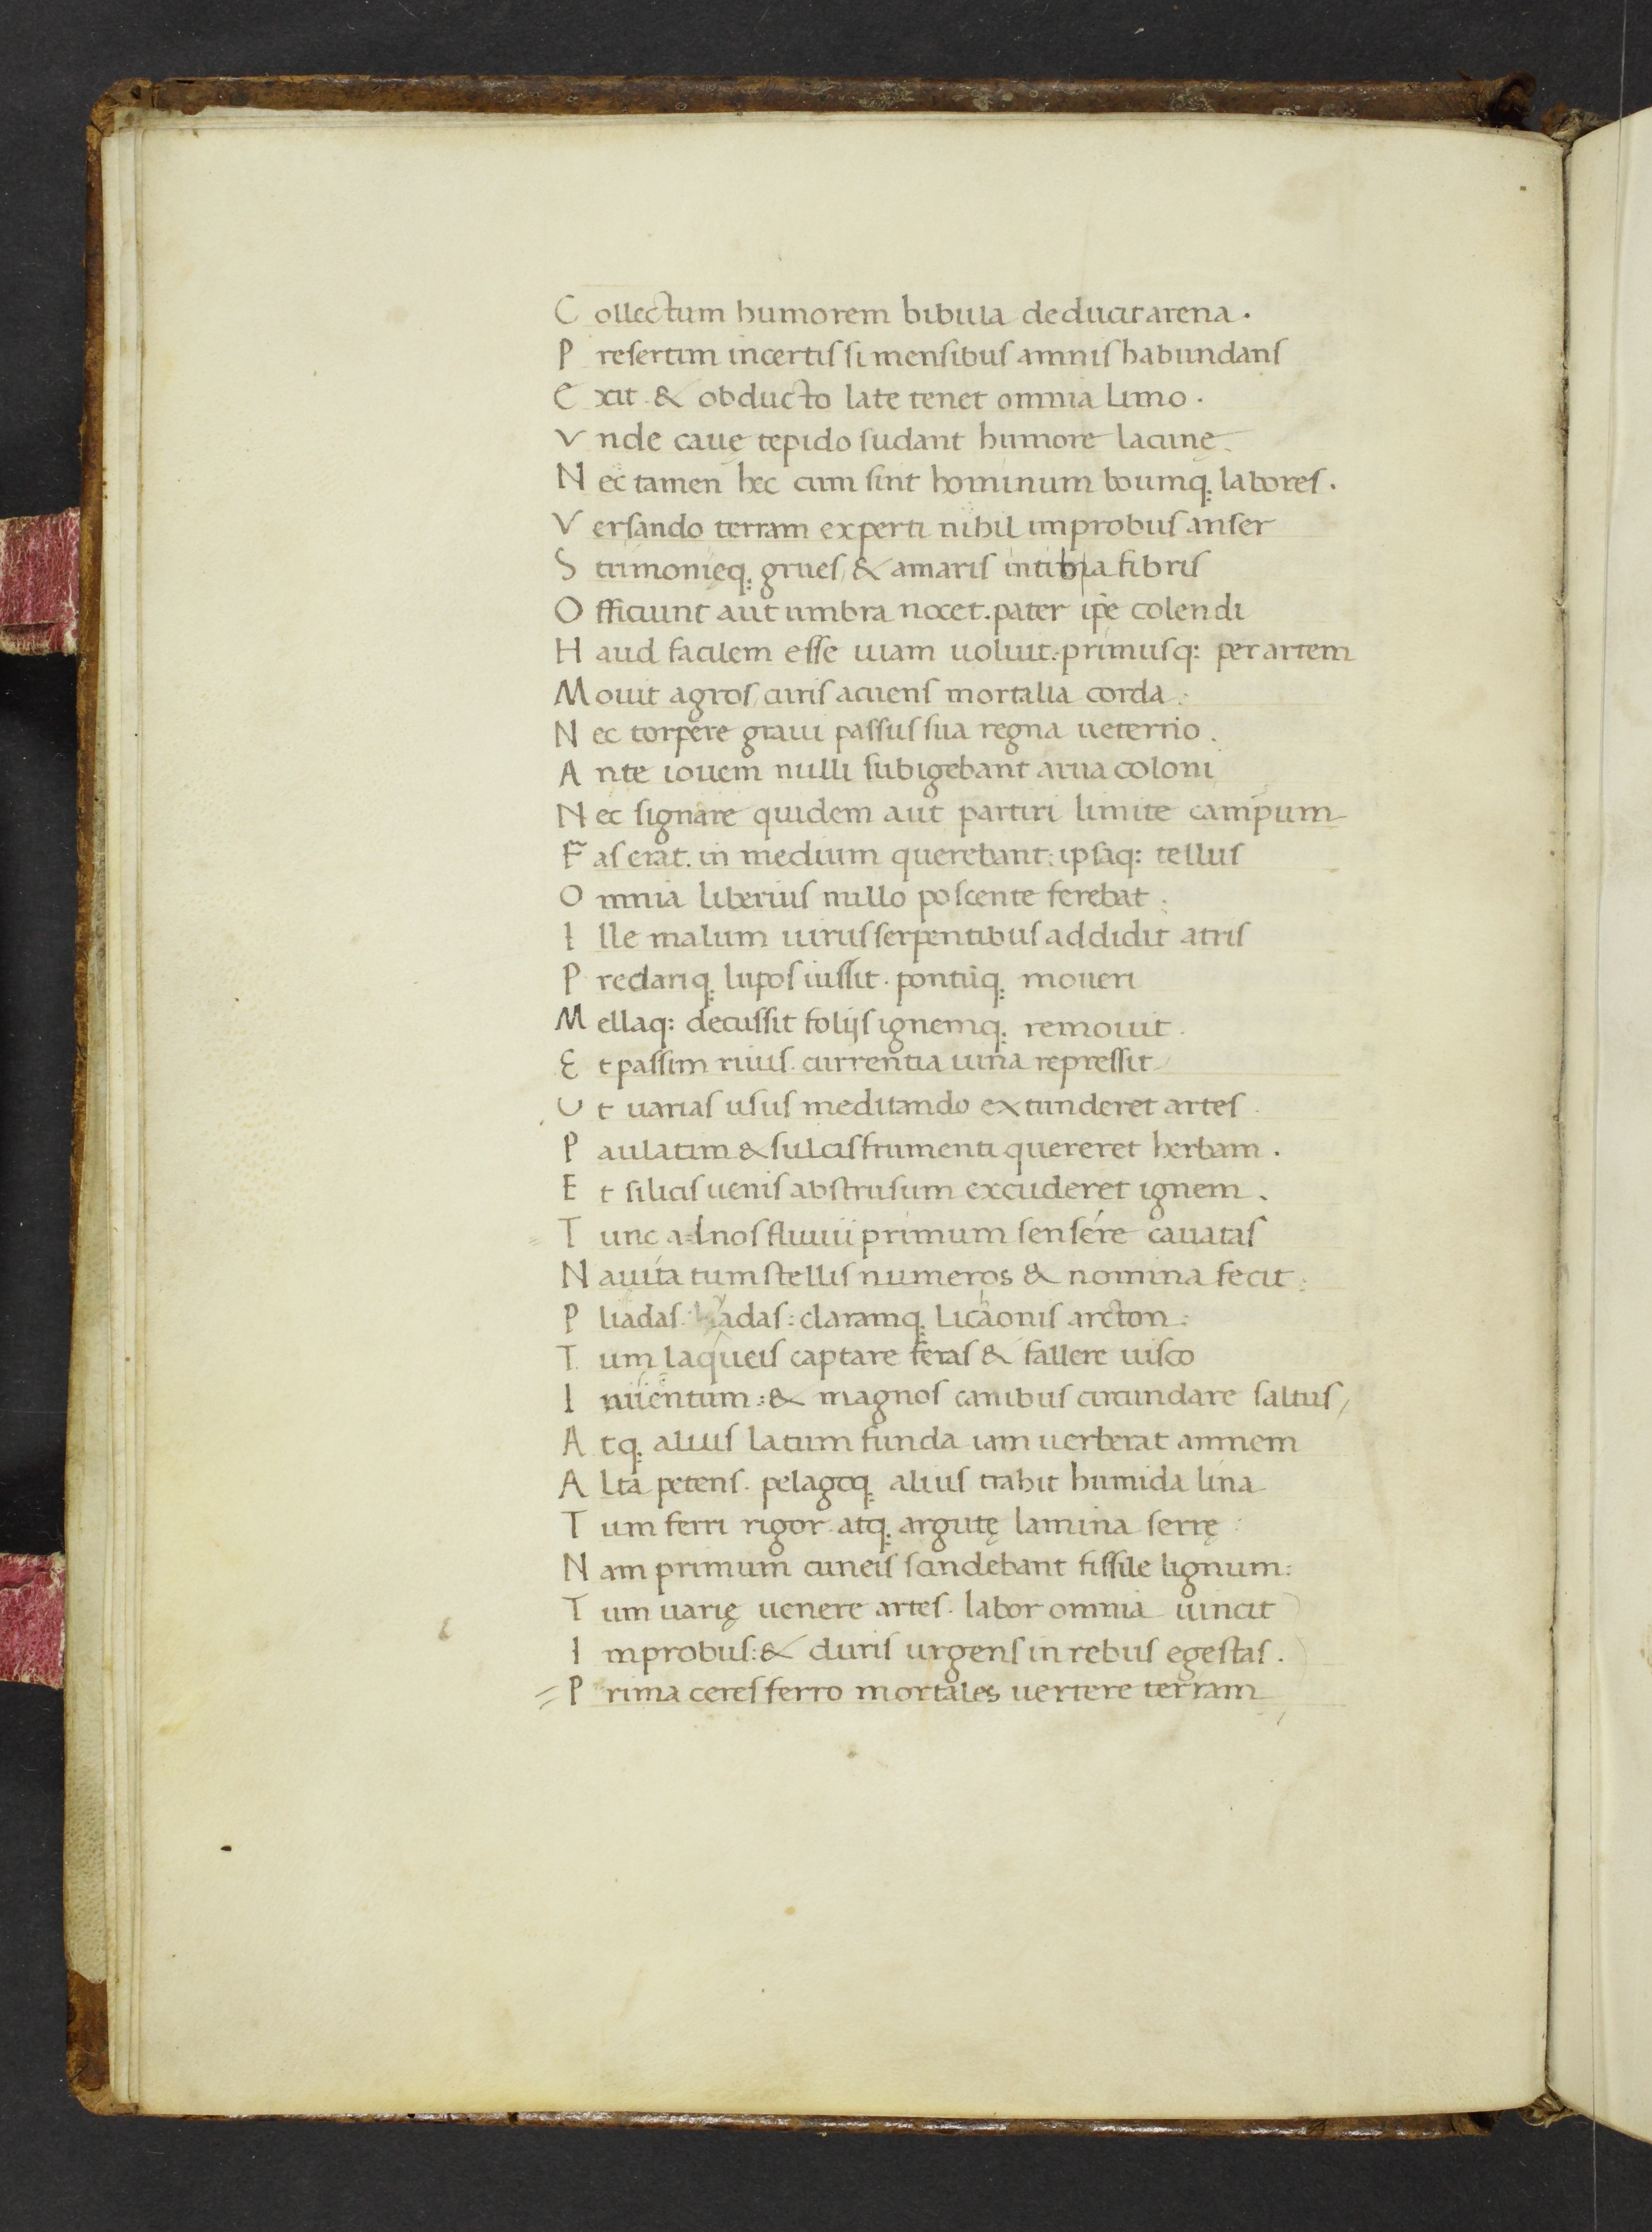 Collectum humorem bibula deducit arena.
Presertim incertis si mensibus amnis habundans
Exit & obducto late tenet omnia limo.
Vnde cauę tepido sudant humore lacunę.
Nec tamen hęc cum sint hominum boumq; labores.
Versando terram experti nihil improbus anser
Strimonięq; grues, & amaris intiba fibris
Officiunt aut umbra nocet. pater ip̄e colendi
Haud facilem esse uiam uoluit: primusq: per artem
Mouit agros, curis acuens mortalia corda.
Nec torpere graui passus sua regna ueterno.
Ante iouem nulli subigebant arua coloni
Nec signare quidem aut partiri limite campum
Fas erat. in medium querebant: ipsaq: tellus
Omnia liberius nullo poscente ferebat.
Ille malum uirus serpentibus addidit atris
Predariq; lupos iussit. pontūq; moueri
Mellaq: decussit folijs ignemq; remouit.
Et passim riuis. currentia uina repressit
Vt uarias usus meditando extunderet artes.
Paulatim & sulcis frumenti quereret herbam.
Et silicis uenis abstrusum excuderet ignem.
Tunc alnos fluuii primum sensére cauatas
Nauita tum stellis numeros & nomina fecit:
Pliadas. hyadas: claramq; licaonis arcton:
Tum laqueis captare feras & fallere uisco
Inuentum: & magnos canibus circundare saltus,
Atq; alius latum funda iam uerberat amnem
Alta petens. pelagoq; alius trahit humida lina
Tum ferri rigor atq; argutę lamina serrę
Nam primum cuneis scindebant fissile lignum:
Tum uarię uenere artes. labor omnia uincit
Improbus: & duris urgens in rebus egestas.
Prima ceres ferro mortales uertere terram